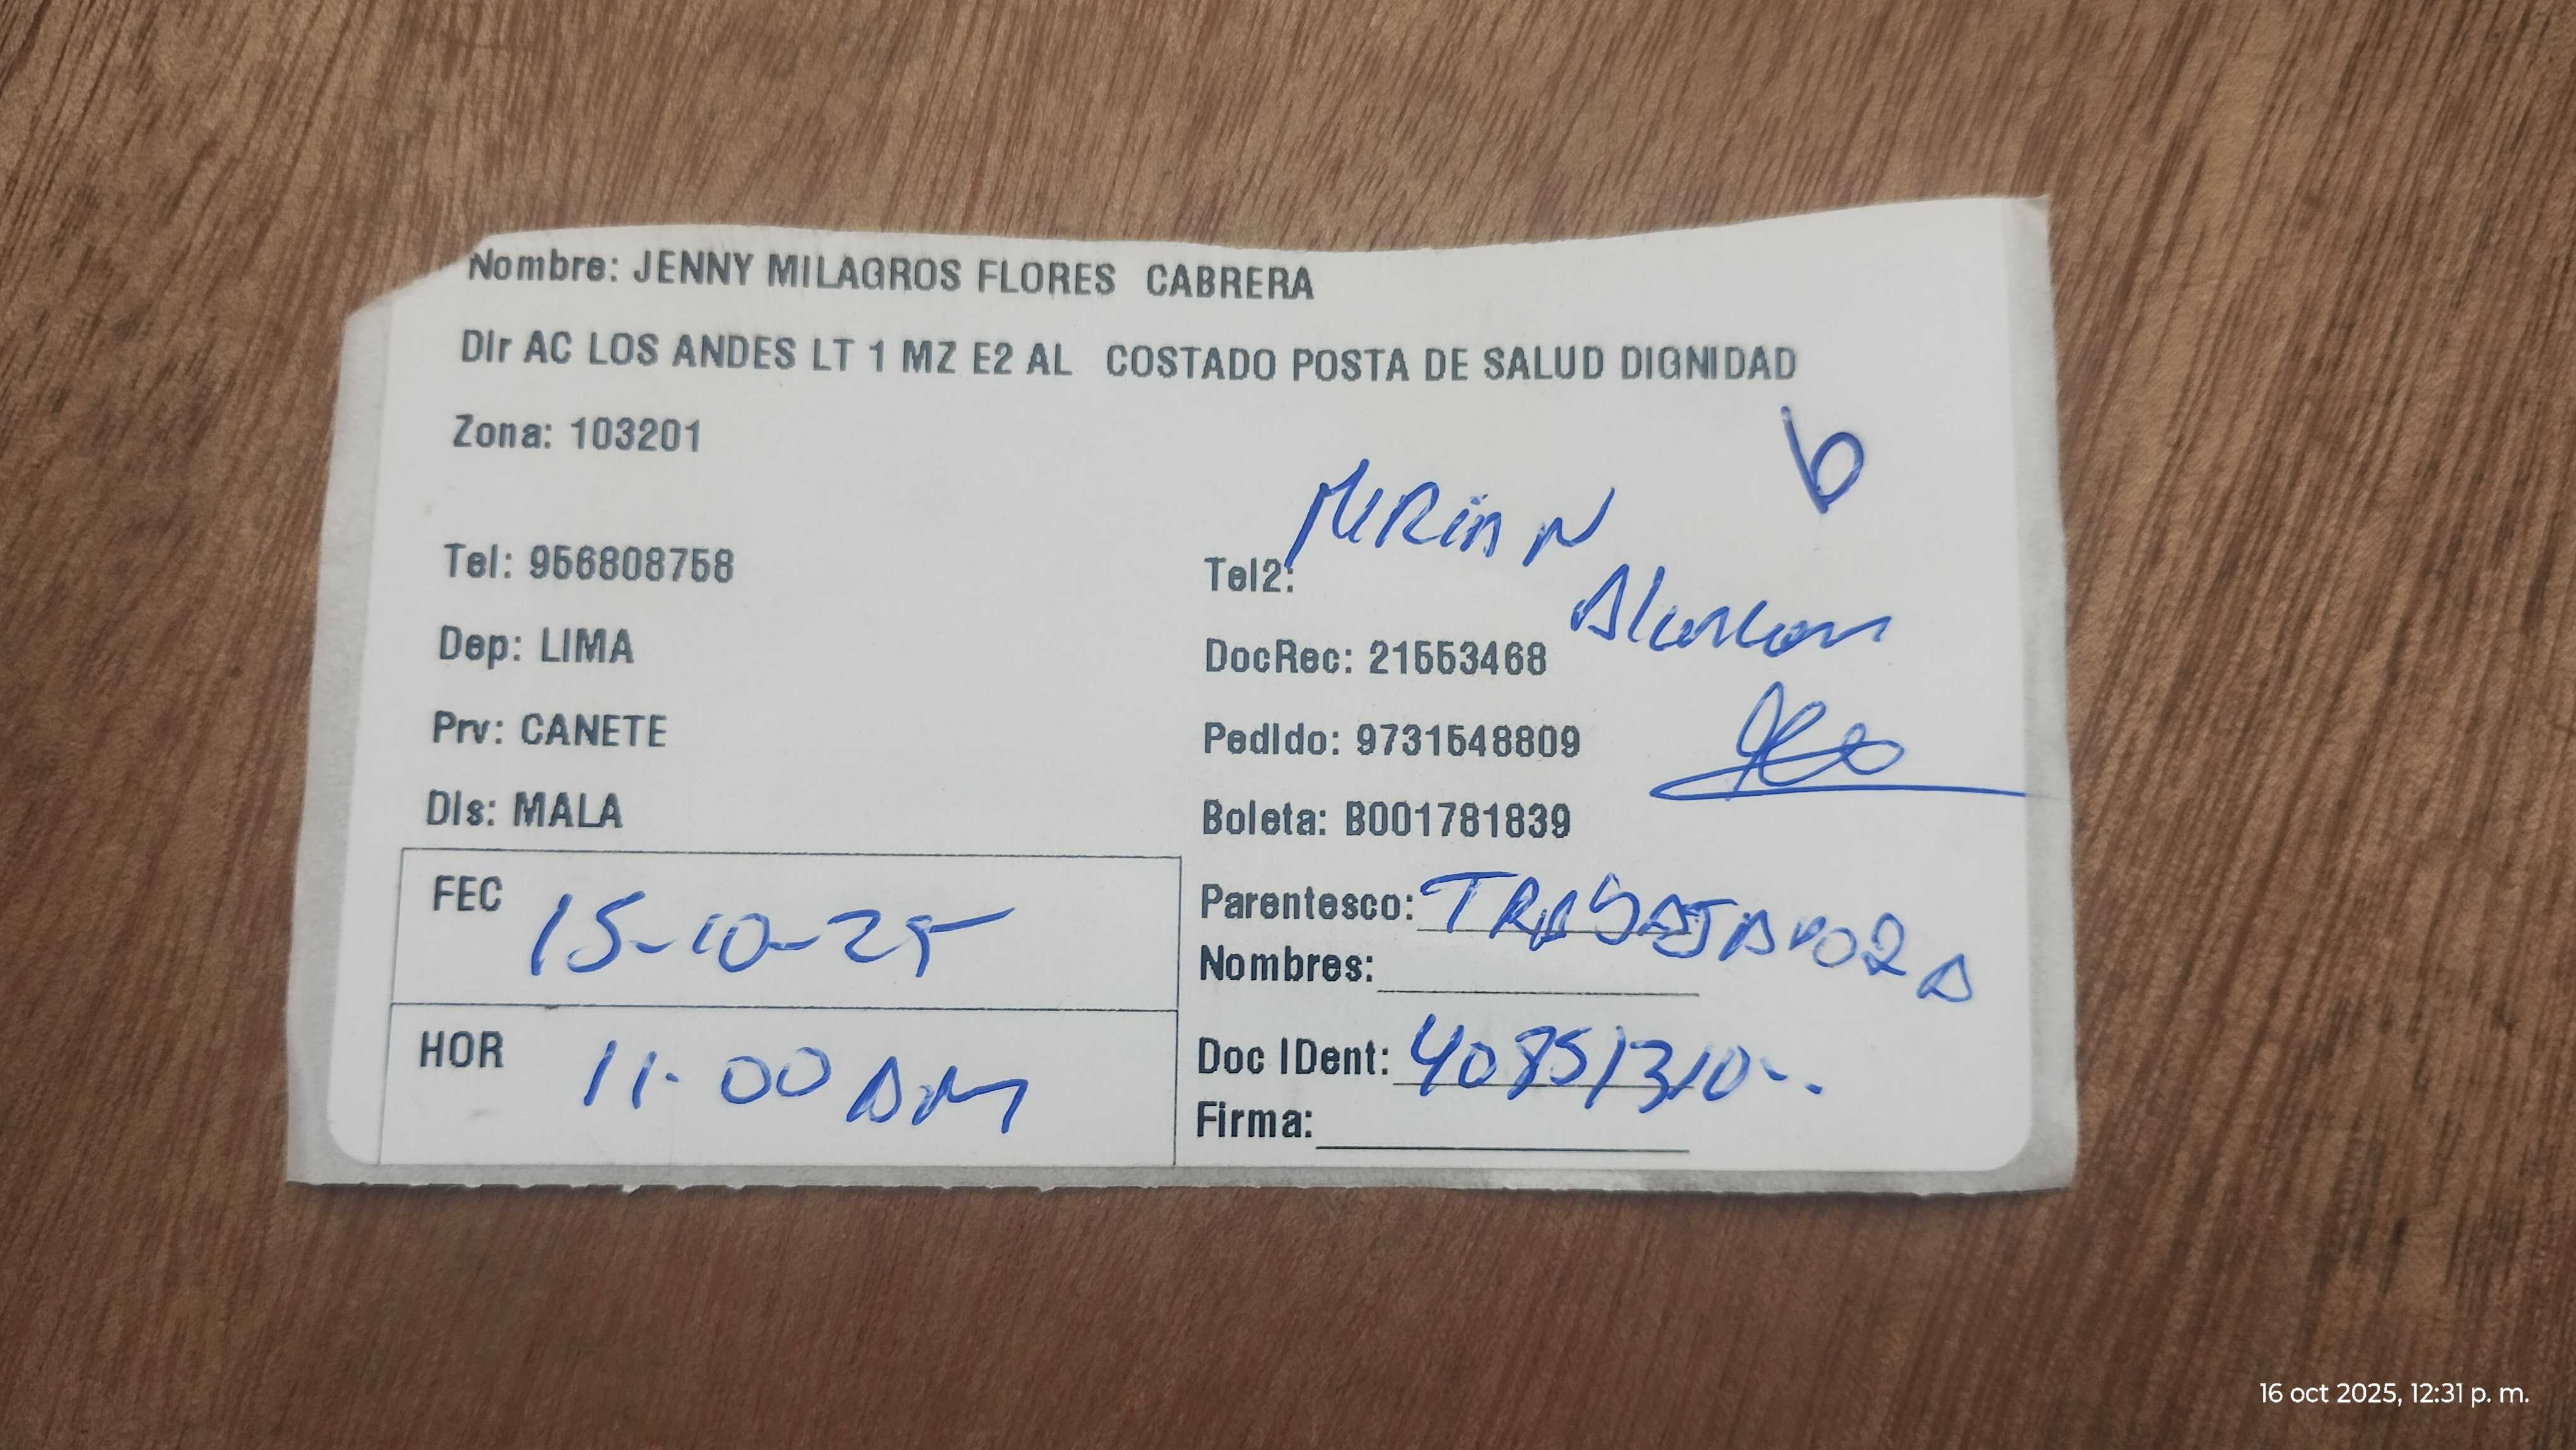 Nombre: JENNY MILAGROS FLORES CABRERA
Dir AC LOS ANDES LT 1 MZ E2 AL COSTADO POSTA DE SALUD DIGNIDAD
Zona: 103201
b
MIRIAN
Alarcon
Tel: 956808758
Tel2:
Dep: LIMA
DocRec: 21553468
Prv: CANETE
Pedido: 9731548809
Dis: MALA
Boleta: B001781839
FEC 15-10-25
Parentesco: TRABAJADORA
Nombres:
HOR 11:00 AM
Doc IDent: 40851310
Firma:
16 oct 2025, 12:31 p. m.